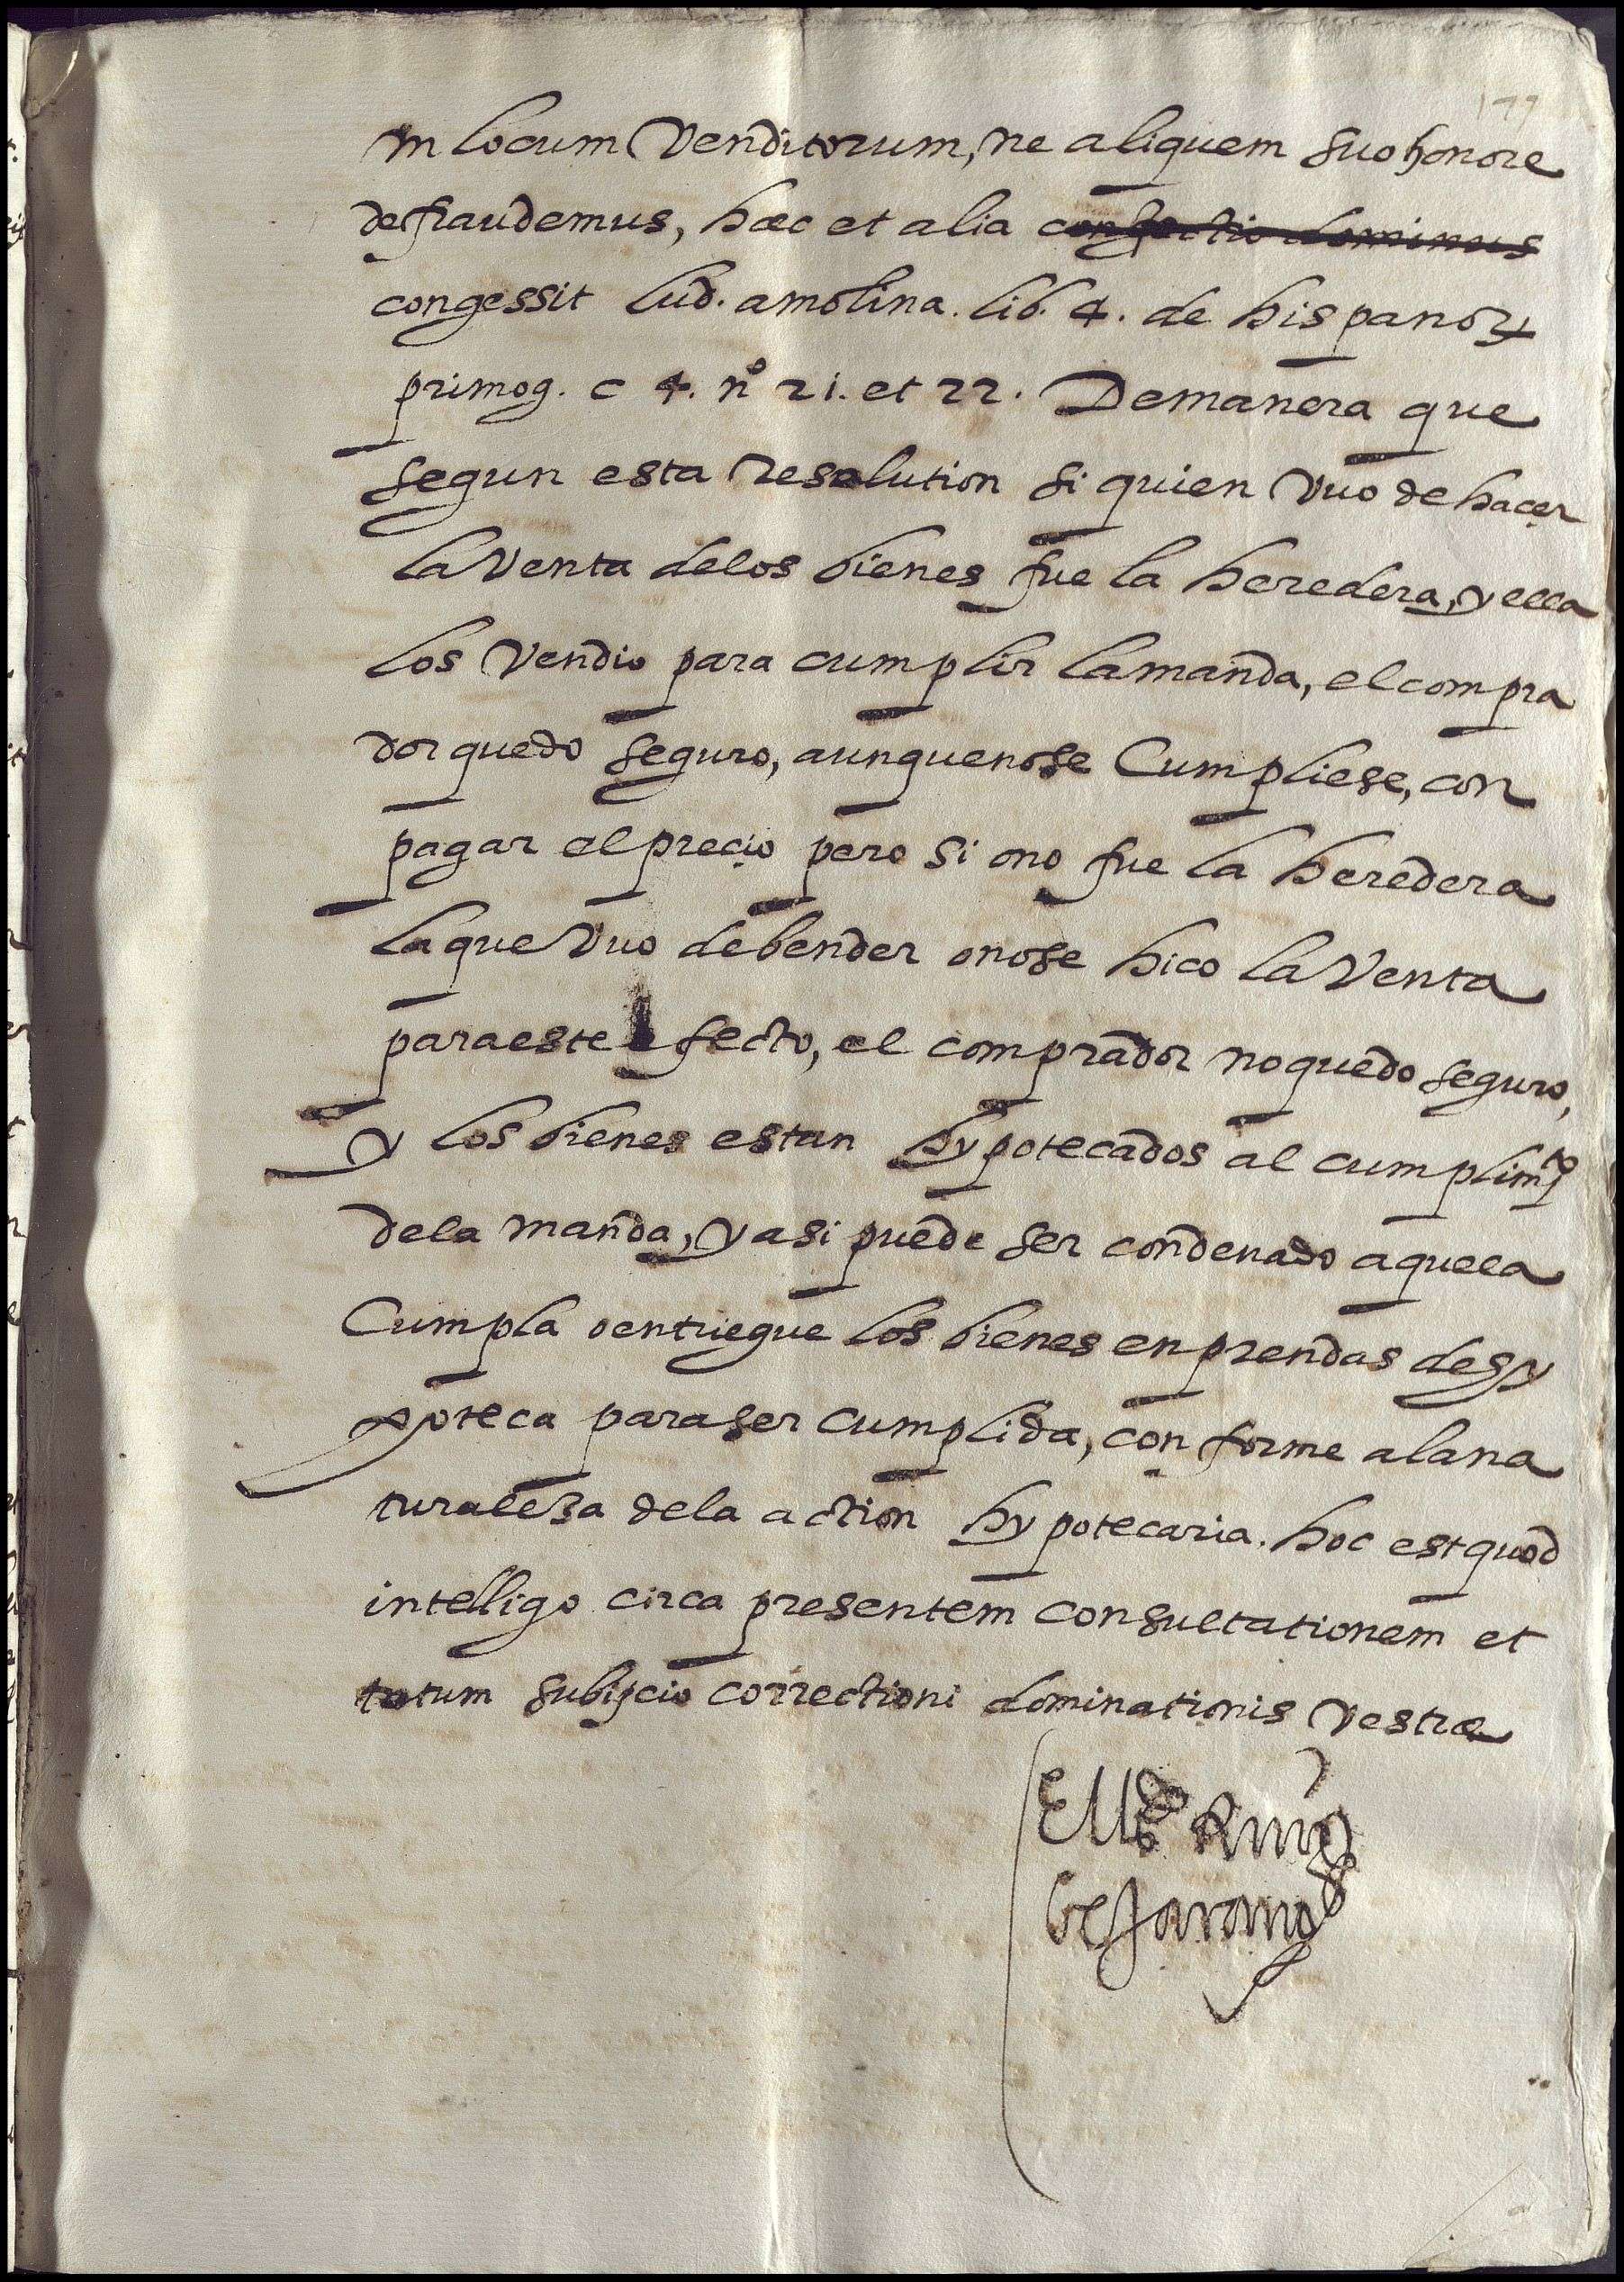 in locum Venditorum, ne aliquem suo honore
defraudemus, hæc et alia
congessit lud. amolina. lib. 4. de hispanoꝝ
primog. c 4. nº 21. et 22. Demanera que
segun esta resolution si quien Vuo de hacer
la Venta delos bienes fue la heredera, y ella
los Vendio para cumplir lamanda, el compra
dor quedo seguro, aunquenose Cumpliese, con
pagar el precio pero si ono fue la heredera
la que Vuo debender onose hiço la Venta
paraeste efecto, el comprador noquedo seguro,
y los bienes estan hypotecados al cumplimto
dela manda, y asi puede ser condenado aquella
Cumpla o entriegue los bienes enprendas desy
ypoteca paraser cumplida, conforme alana
turaleza dela action hypotecaria. hoc est quod
intelligo circa presentem consultationem et
totum subijcio correctioni dominationis Vestræ
El ldo Ruiz
beJarano